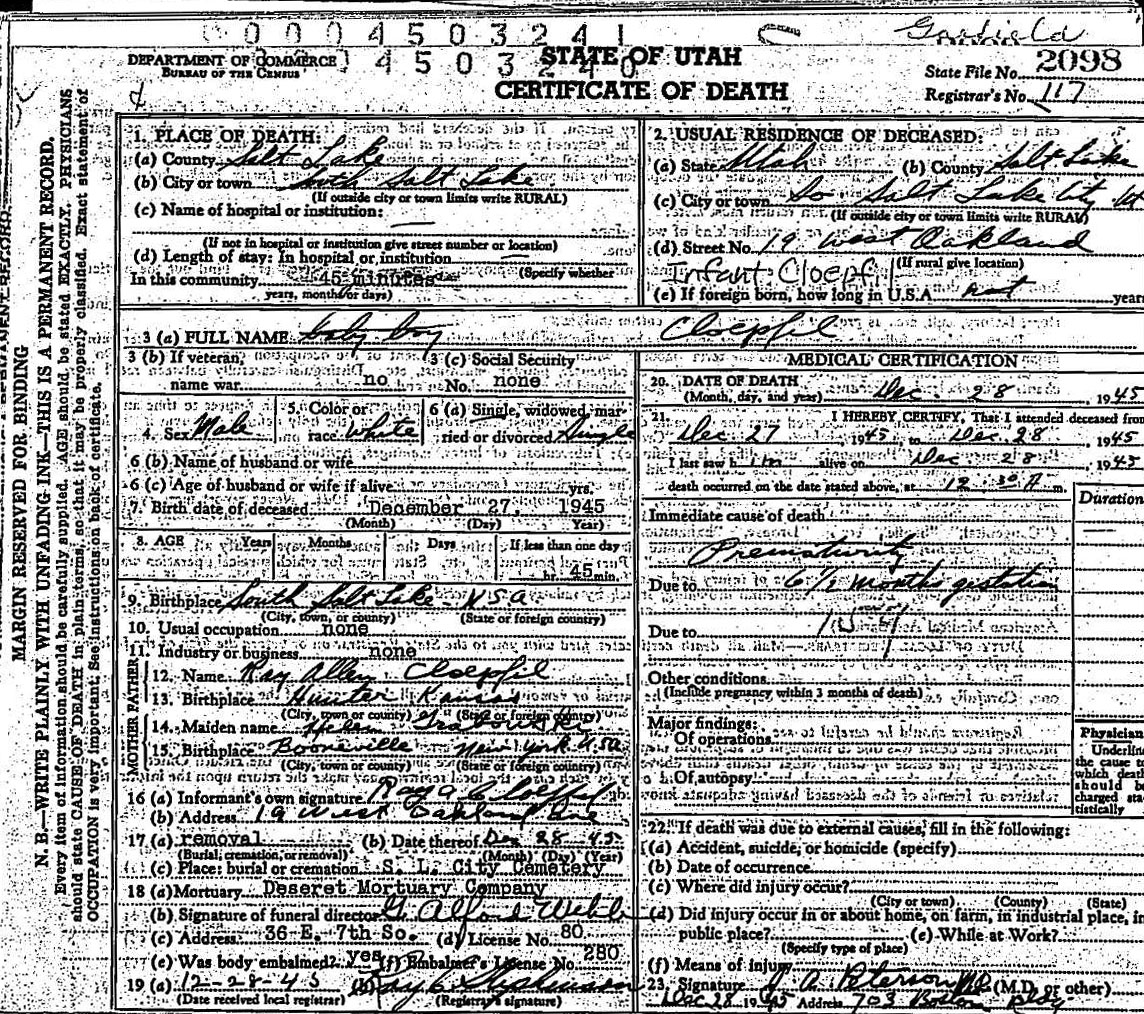 0 0 0 4 5 0 3 2 4 1
4 5 0 3 2 4 0
Garfield
DEPARTMENT OF COMMERCE
BUREAU OF THE CENSUS
STATE OF UTAH
CERTIFICATE OF DEATH
State File No. 2098
Registrar's No. 117
MARGIN RESERVED FOR BINDING
N. B.—WRITE PLAINLY WITH UNFADING INK—THIS IS A PERMANENT RECORD.
Every item of information should be carefully supplied. AGE should be stated EXACTLY. PHYSICIANS
should state CAUSE OF DEATH in plain terms, so that it may be properly classified. Exact statement of
OCCUPATION is very important. See instructions on back of certificate.
1. PLACE OF DEATH:
(a) County Salt Lake
(b) City or town South Salt Lake
(If outside city or town limits write RURAL)
(c) Name of hospital or institution: —
(If not in hospital or institution give street number or location)
(d) Length of stay: In hospital or institution —
(Specify whether
In this community 45 minutes
years, months or days)
2. USUAL RESIDENCE OF DECEASED:
(a) State Utah (b) County Salt Lake
(c) City or town So Salt Lake City Ut
(If outside city or town limits write RURAL)
(d) Street No. 19 West Oakland
(If rural give location)
Infant Cloepfil
(e) If foreign born, how long in U.S.A. not years
3 (a) FULL NAME baby boy Cloepfil
3 (b) If veteran, name war no
3 (c) Social Security No. none
4. Sex Male
5. Color or race White
6 (a) Single, widowed, married or divorced Single
6 (b) Name of husband or wife
6 (c) Age of husband or wife if alive yrs.
7. Birth date of deceased December 27, 1945
(Month) (Day) Year)
8. AGE Years Months Days If less than one day
hr. 45 min.
9. Birthplace South Salt Lake - U.S.A
(City, town, or county) (State or foreign country)
10. Usual occupation none
11. Industry or business none
FATHER
12. Name Ray Allen Cloepfil
13. Birthplace Hunter Kansas
(City, town or county) (State or foreign country)
MOTHER
14. Maiden name Helen
15. Birthplace Booneville New York U.S.A
(City, town or county) (State or foreign country)
16 (a) Informant's own signature Ray A Cloepfil
(b) Address 19 West Oakland Ave
17 (a) removal (b) Date thereof Dec 28 45
(Burial, cremation, or removal) (Month) (Day) (Year)
(c) Place: burial or cremation S. L. City Cemetery
18 (a) Mortuary Deseret Mortuary Company
(b) Signature of funeral director G. Alford Webb
(c) Address 36 E. 7th So. (d) License No. 80
(e) Was body embalmed? yes (f) Embalmer's License No. 280
19 (a) 12-28-45 (b)
(Date received local registrar) (Registrar's signature)
MEDICAL CERTIFICATION
20. DATE OF DEATH
(Month, day, and year) Dec. 28, 1945
21. I HEREBY CERTIFY, That I attended deceased from
Dec 27, 1945, to Dec. 28, 1945
I last saw him alive on Dec 28, 1945
death occurred on the date stated above, at 12 30 A m.
Duration
Immediate cause of death —
Prematurity
Due to 6 1/2 months gestation
Due to
Other conditions
(Include pregnancy within 3 months of death)
Major findings:
Of operations
Of autopsy
Physician
Underline
the cause to
which death
should be
charged sta-
tistically
22. If death was due to external causes, fill in the following:
(a) Accident, suicide, or homicide (specify)
(b) Date of occurrence
(c) Where did injury occur?
(City or town) (County) (State)
(d) Did injury occur in or about home, on farm, in industrial place, in
public place? (e) While at Work?
(Specify type of place)
(f) Means of injury
23. Signature A. Peterson M.D. (M.D. or other)
Dec 28 1945 Address 703 Boston Bldg